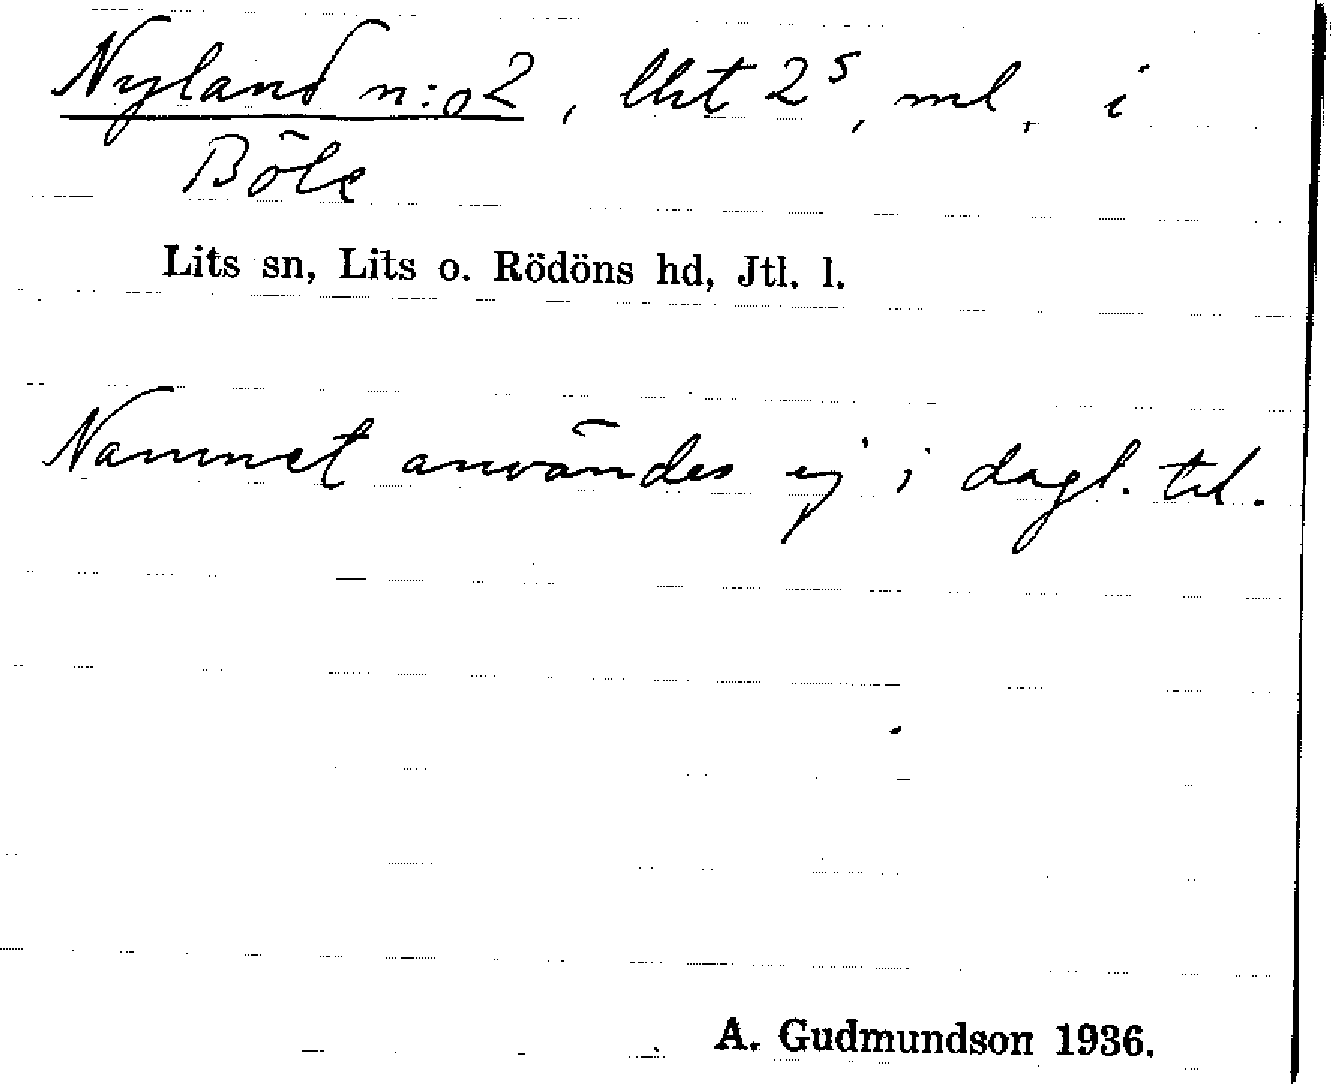 Nyland n:o 2, lht 2⁵, ml, i
Böle
Lits sn, Lits o. Rödöns hd, Jtl. l.
Namnet användes ej i dagl. tal.
A. Gudmundson 1936.